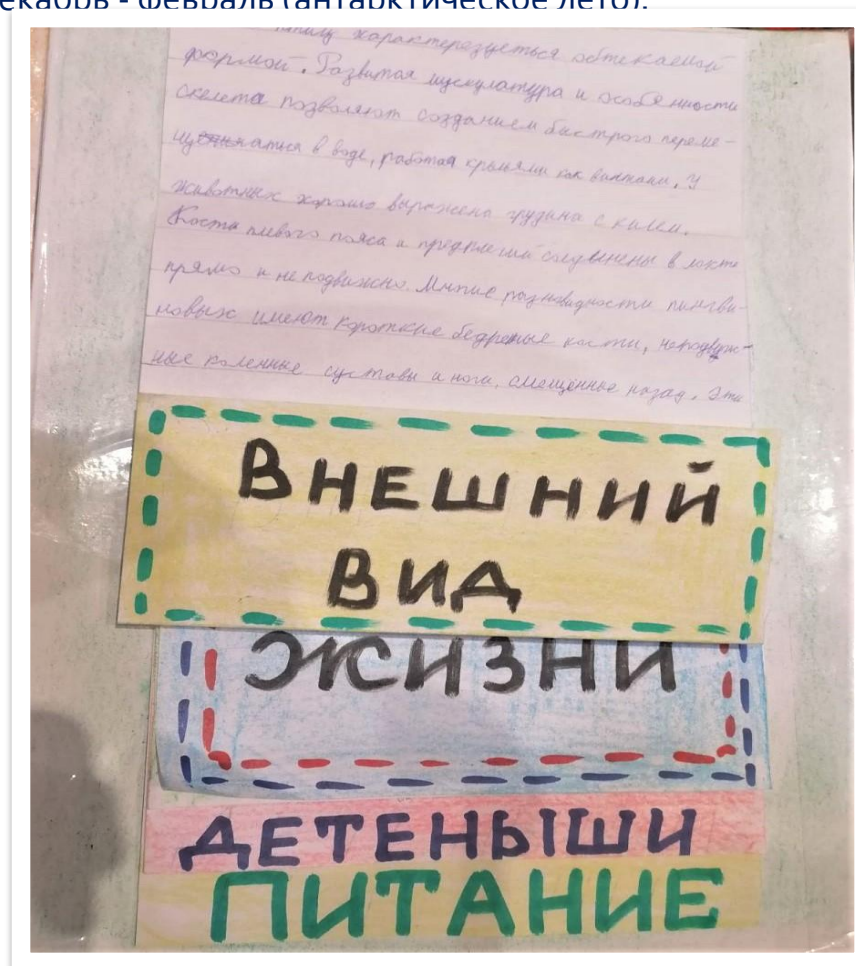 декабрь - февраль (антарктическое лето).
характерезуеться обтекаемой
формой. Развитая мускулатура и особенности
скелета позволяют созданием быстрого переме-
в воде, работая крыльями как винтами. У
животных хорошо выражена грудина с килем.
Кости пояса и предплечий соединены в локте
прямо и неподвижно. Многие разновидности пингви-
новых имеют короткие бедреные кости, неподвиж-
ные коленные суставы и ноги, смещённые назад. Эти
ВНЕШНИЙ
ВИД
ЖИЗНИ
ДЕТЕНЫШИ
ПИТАНИЕ